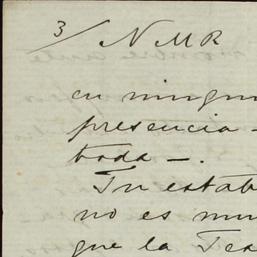 3/ NMR
en ningun
presencia -
toda -.
Tu estab
no es mu
que la Tea